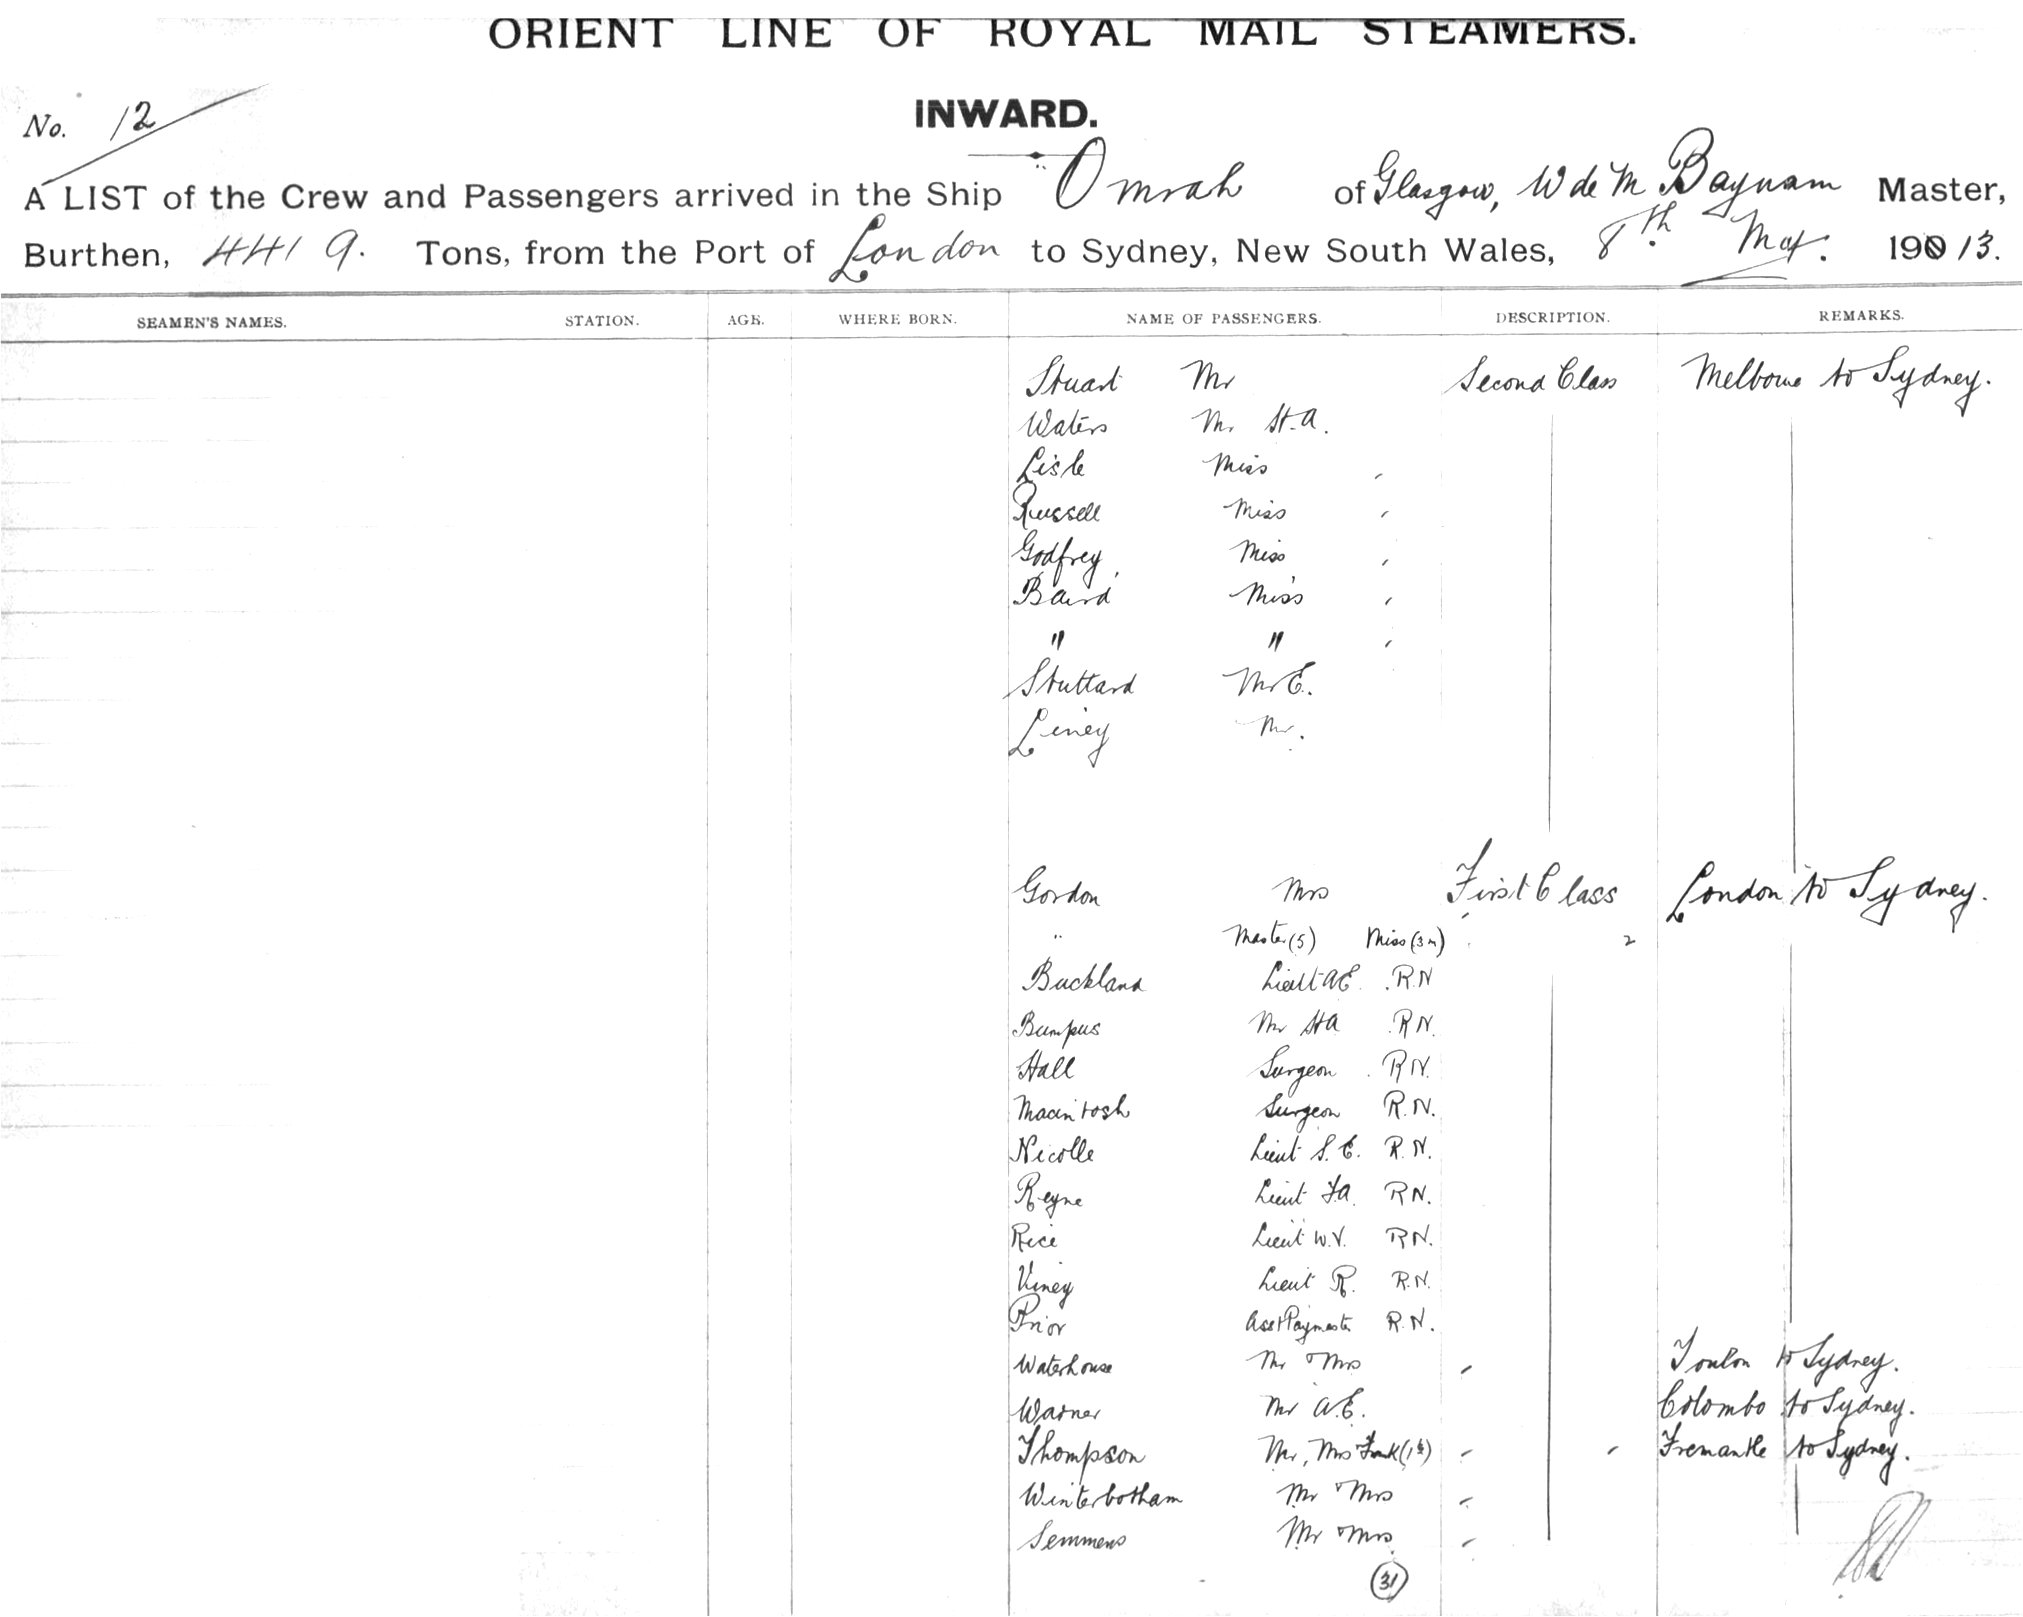 ORIENT LINE OF ROYAL MAIL STEAMERS.
No. 12
INWARD.
A LIST of the Crew and Passengers arrived in the Ship "Omrah of Glasgow, W de M Baynam Master,
Burthen, 4419. Tons, from the Port of London to Sydney, New South Wales, 8th May. 19013.
SEAMEN'S NAMES. STATION. AGE. WHERE BORN. NAME OF PASSENGERS. DESCRIPTION. REMARKS.
Stuart Mr Second Class Melbourne to Sydney.
Waters Mr H.A.
Lisle Miss
Russell Miss
Godfrey Miss
Baird Miss
" "
Stuttard Mr E.
Liney Mr.
Gordon Mrs First Class London to Sydney.
" Master (5) Miss (3m) 2
Buckland Lieut A E. R.N
Bumpus Mr HA R.N.
Hall Surgeon R.N.
Macintosh Surgeon R.N.
Nicolle Lieut S. E. R.N.
Reyne Lieut FA. R.N.
Rice Lieut W.V. R.N.
Viney Lieut R. R.N.
Prior Asst Paymaster R.N.
Waterhouse Mr & Mrs Toulon to Sydney.
Warner Mr A.E. Colombo to Sydney.
Thompson Mr, Mrs Frank (1½) Fremantle to Sydney.
Winterbotham Mr & Mrs
Semmens Mr & Mrs
31